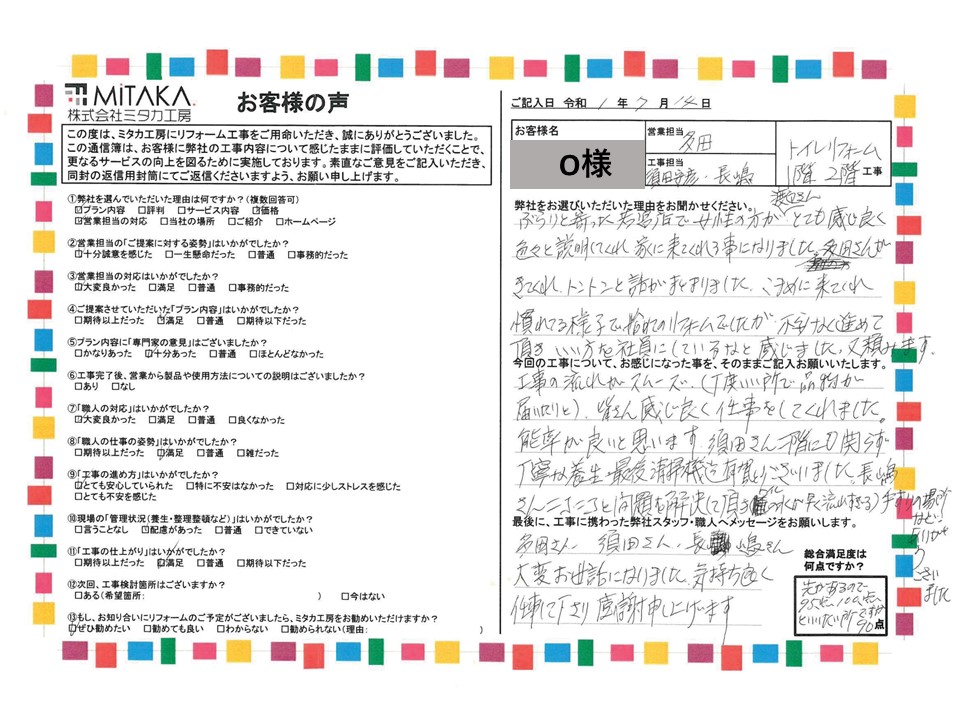 MITAKA.
株式会社ミタカ工房
お客様の声
この度は、ミタカ工房にリフォーム工事をご用命いただき、誠にありがとうございました。
この通信簿は、お客様に弊社の工事内容について感じたままに評価していただくことで、
更なるサービスの向上を図るために実施しております。素直なご意見をご記入いただき、
同封の返信用封筒にてご返信くださいますよう、お願い申し上げます。
①弊社を選んでいただいた理由は何ですか?(複数回答可)
☑プラン内容 □評判 □サービス内容 ☑価格
☑営業担当の対応 □当社の場所 □ご紹介 □ホームページ
②営業担当の「ご提案に対する姿勢」はいかがでしたか?
☑十分誠意を感じた □一生懸命だった □普通 □事務的だった
③営業担当の対応はいかがでしたか?
☑大変良かった □満足 □普通 □事務的だった
④ご提案させていただいた「プラン内容」はいかがでしたか?
□期待以上だった ☑満足 □普通 □期待以下だった
⑤プラン内容に「専門家の意見」はございましたか?
□かなりあった ☑十分あった □普通 □ほとんどなかった
⑥工事完了後、営業から製品や使用方法についての説明はございましたか?
□あり □なし
⑦「職人の対応」はいかがでしたか?
☑大変良かった □満足 □普通 □良くなかった
⑧「職人の仕事の姿勢」はいかがでしたか?
□期待以上だった ☑満足 □普通 □雑だった
⑨「工事の進め方」はいかがでしたか?
☑とても安心していられた □特に不安はなかった □対応に少しストレスを感じた
□とても不安を感じた
⑩現場の「管理状況(養生・整理整頓など)」はいかがでしたか?
□言うことなし ☑配慮があった □普通 □できていない
⑪「工事の仕上がり」はいかがでしたか?
□期待以上だった ☑満足 □普通 □期待以下だった
⑫次回、工事検討箇所はございますか?
□ある(希望箇所: ) □今はない
⑬もし、お知り合いにリフォームのご予定がございましたら、ミタカ工房をお勧めいただけますか?
☑ぜひ勧めたい □勧めても良い □わからない □勧められない(理由: )
ご記入日 令和 1 年 7 月 日
お客様名
O様
営業担当
多田
工事担当
須田 ・長嶋
トイレリフォーム
1階 2階 工事
弊社をお選びいただいた理由をお聞かせください。
ぶらりと寄った で女性の方が とても感じ良く
色々と説明してくれ 家に来てくれる事になりました。多田さんが
きてくれ、トントンと話がまとまりました。こまめに来てくれ
慣れてる様子で のリフォームでしたが 不安なく進めて
頂き いい方を社員にしているなと感じました。又頼みます。
今回の工事について、お感じになった事を、そのままご記入お願いいたします。
工事の流れがスムーズ、(丁度いい所で品物が
届いたりと)、皆さん感じ良く仕事をしてくれました。
能率が良いと思います。須田さん 階に 関らず
丁寧な養生・最後 清掃機 有難うございました。長嶋
さん と問題を解決して頂き ( 水が 流 すぎる) 手すりの場所
など ありがとう ございました
最後に、工事に携わった弊社スタッフ・職人へメッセージをお願いします。
多田さん 須田さん・長 嶋さん
大変お世話になりました。気持ち良く
仕事して下さり 感謝申し上げます
総合満足度は
何点ですか?
先があるので
95点、100点、
といいたい所ですが
90点